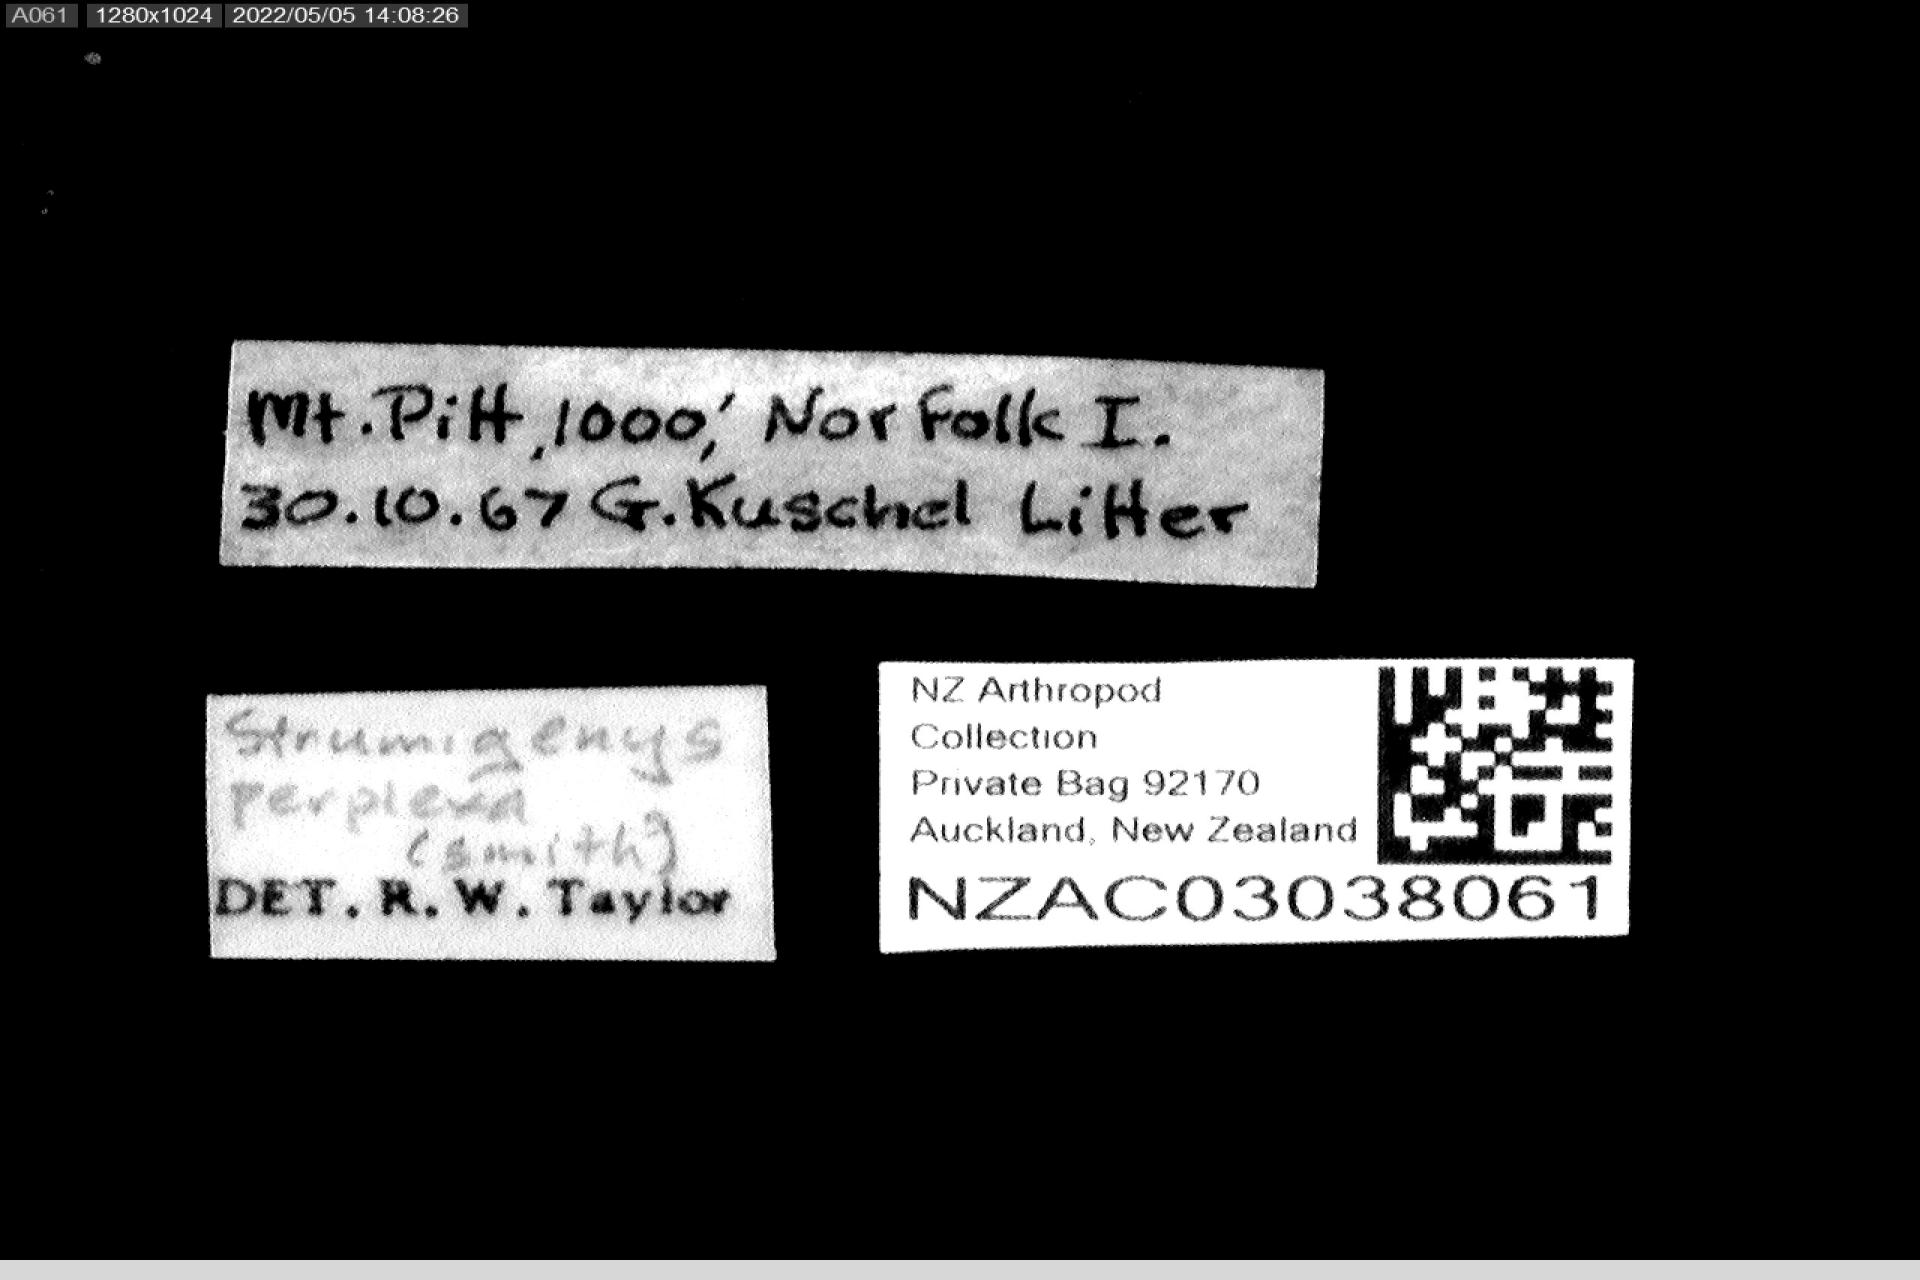 A061 1280x1024 2022/05/05 14:08:26
Mt. Pitt, 1000', Norfolk I.
30.10.67 G. Kuschel Litter
Strumigenys
perplexa
(smith)
DET. R. W. Taylor
NZ Arthropod
Collection
Private Bag 92170
Auckland, New Zealand
NZAC03038061